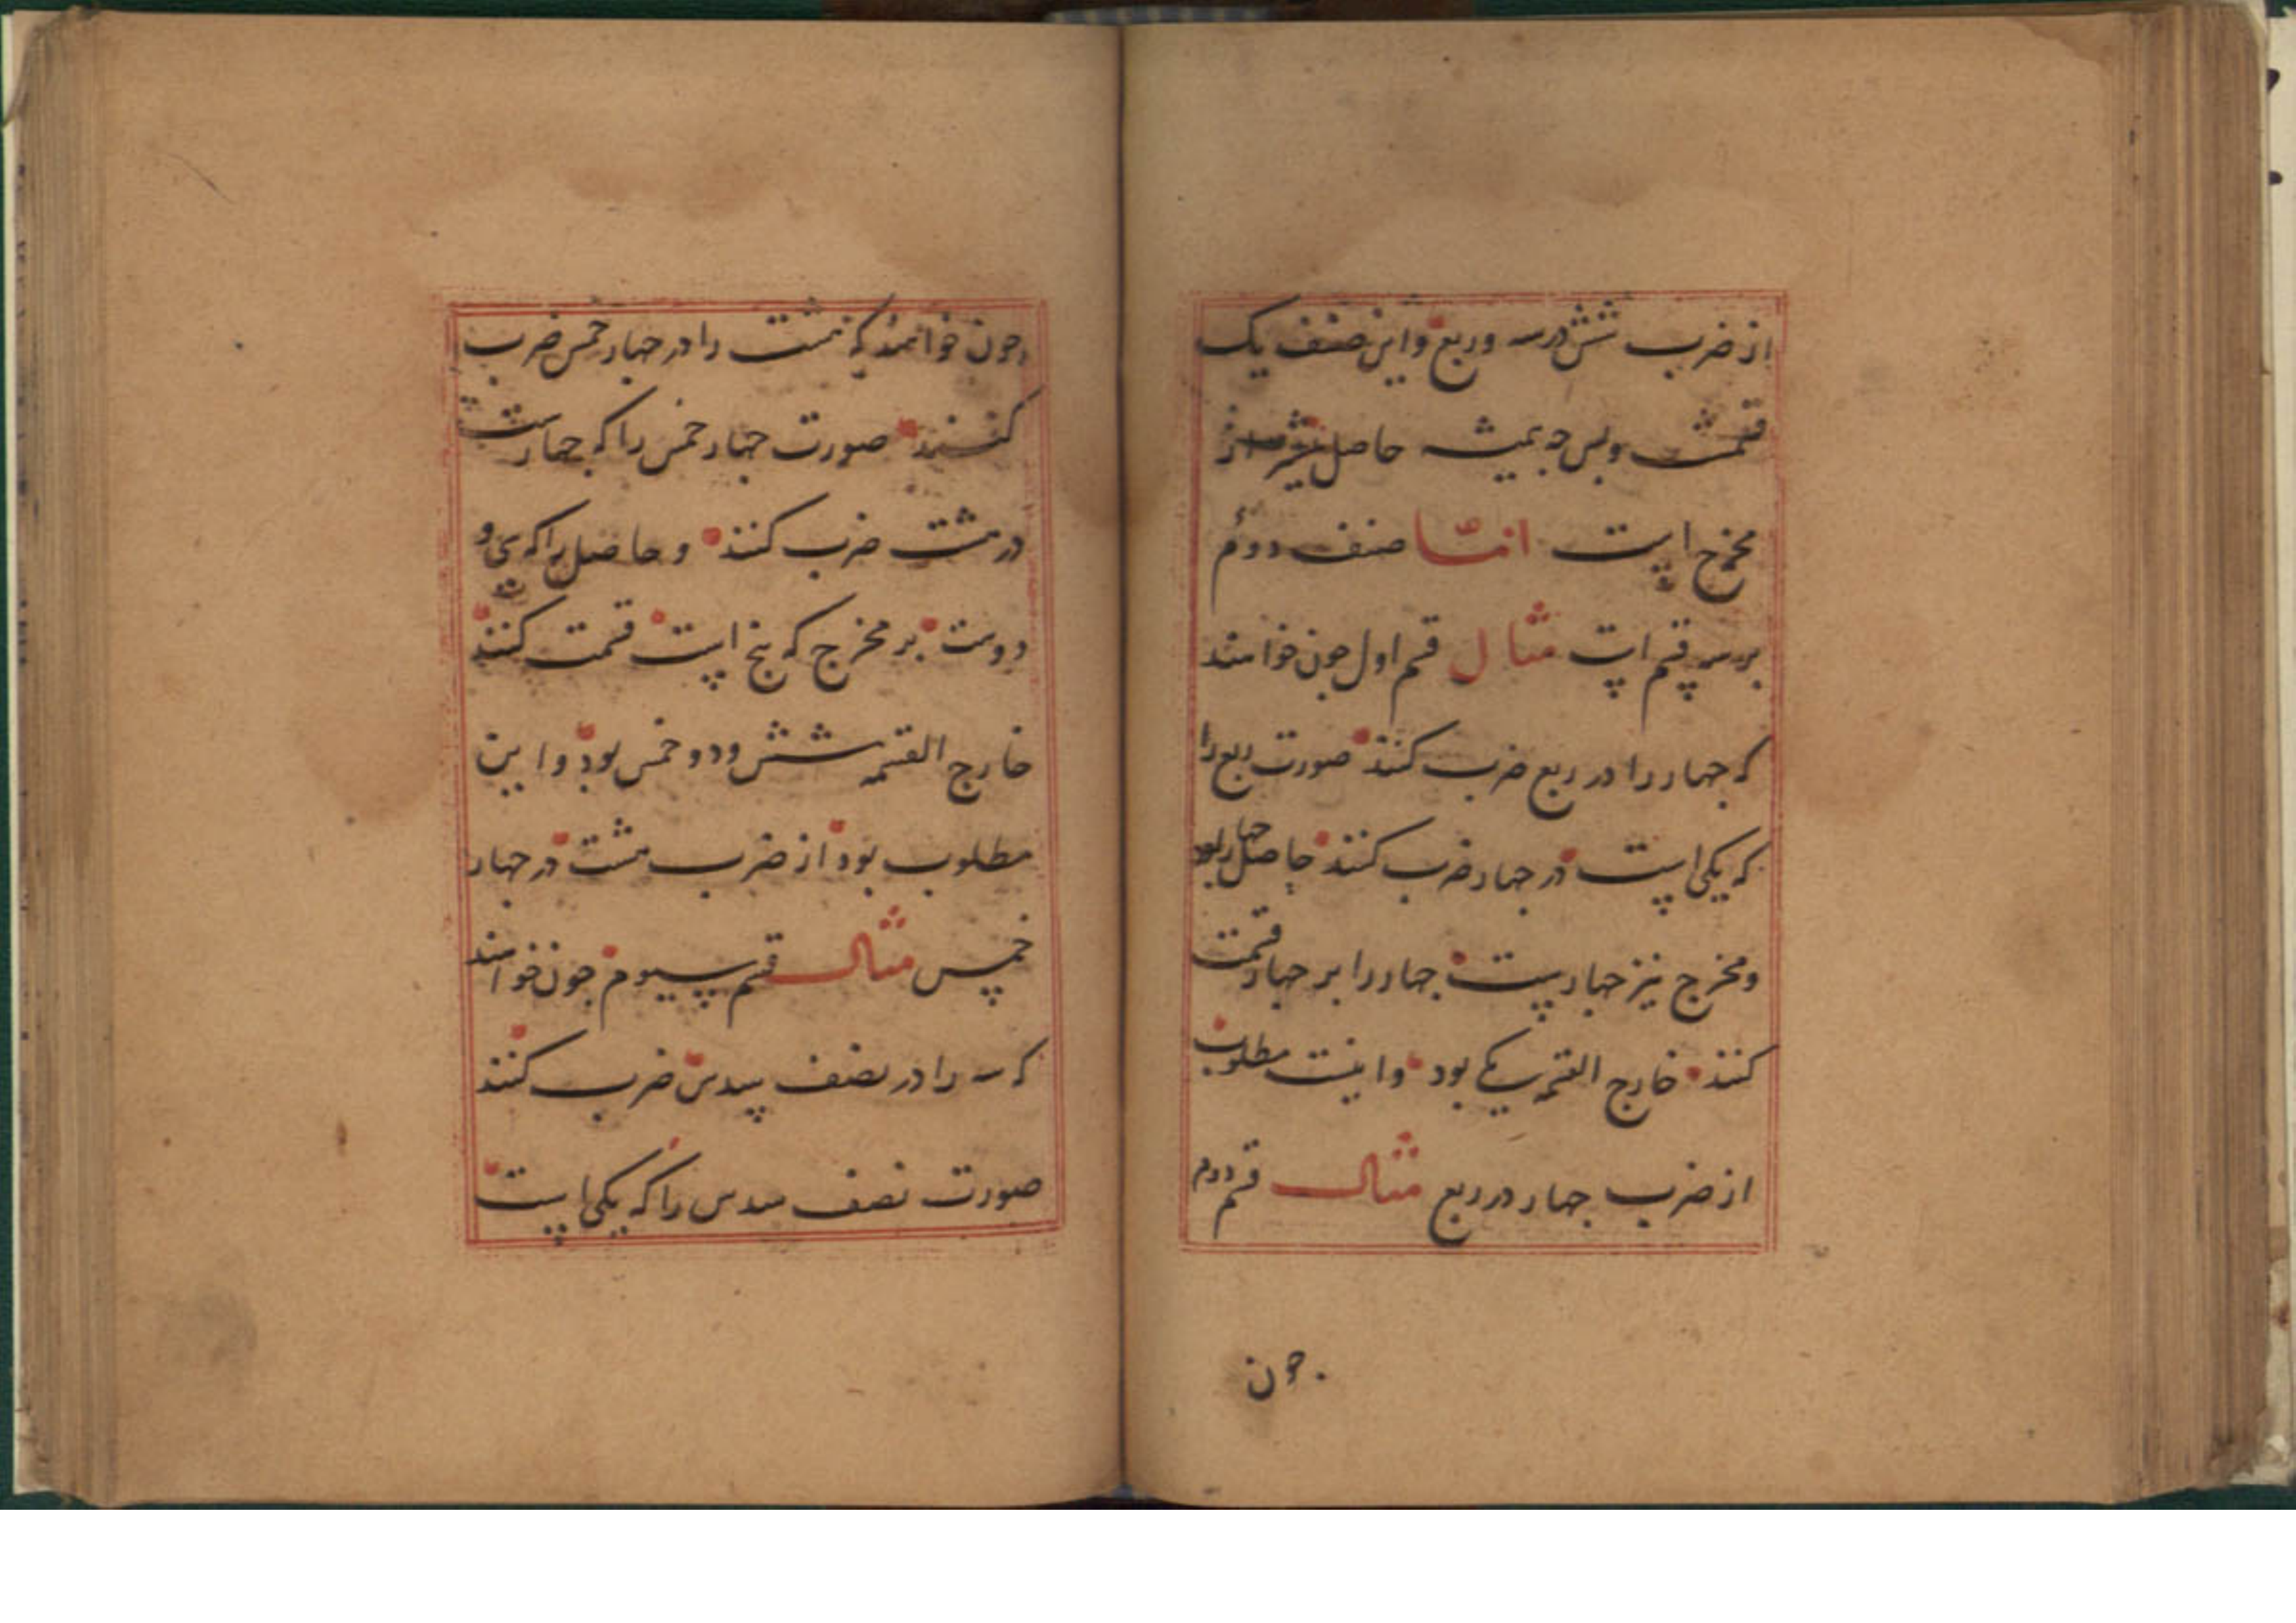 از ضرب شش در سه و ربع و این صنف یک
قسمست و بس چه همیشه حاصل بیشتر از
مخرج است اما صنف دوم
بر سه قسم است مثال قسم اول جون خواهند
که جهار را در ربع ضرب کنند صورت ربع را
که یکی است در جهار ضرب کنند حاصل جهار بود
و مخرج نیز جهارست جهار را بر جهار قسمت
کنند خارج القسمه یکی بود و اینست مطلوب
از ضرب جهار در ربع مثال قسم دوم
جون
جون خواهند که هشت را در جهار خمس ضرب
کنند صورت جهار خمس را که جهارست
در هشت ضرب کنند و حاصل را که سی و
دوست بر مخرج که پنج است قسمت کنند
خارج القسمه شش و دو خمس بود و این
مطلوب بود از ضرب هشت در جهار
خمس مثال قسم سیوم جون خواهند
که سه را در نصف سدس ضرب کنند
صورت نصف سدس را که یکی است